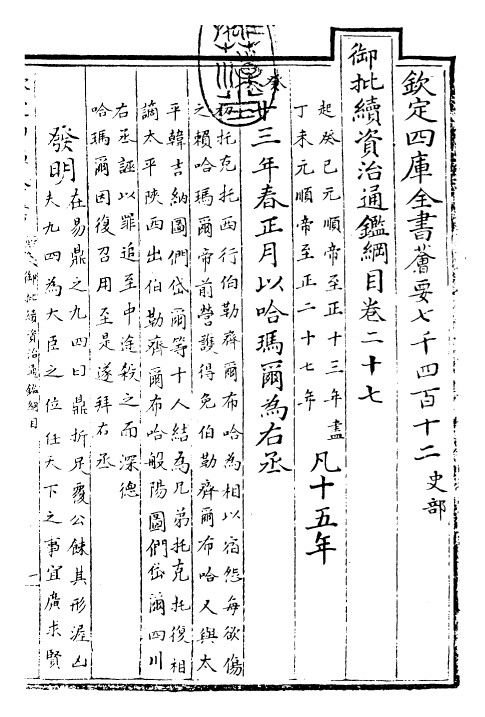 欽定四庫全書薈要七千四百十二 史部
御批續資治通鑑綱目卷二十七
起癸巳元順帝至正十三年盡
丁未元順帝至正二十七年 凡十五年
癸
十三年春正月以哈瑪爾為右丞
初托克托西行伯勒齊爾布哈為相以宿怨每欲傷
之賴哈瑪爾帝前營護得免伯勒齊爾布哈又與太
平韓吉納圖們岱爾等十人結為兄弟托克托復相
謫太平陝西出伯勒齊爾布哈般陽圖們岱爾四川
右丞誣以罪追至中途殺之而深德
哈瑪爾因復召用至是遂拜右丞
發明 在易鼎之九四曰鼎折足覆公餗其形渥凶
夫九四為大臣之位任天下之事宜廣求賢
御批續資治通鑑綱目
一